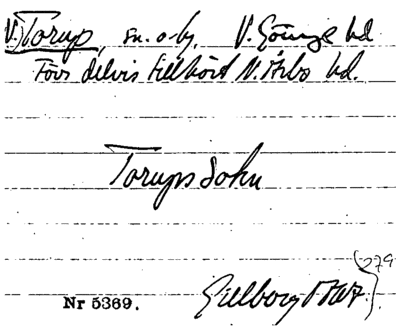 V. Torup, sn. o. by, V. Göinge hd
Förs delvis tillhört N. Åsbo hd.
Torups Sokn
279
Gillberg 1767
Nr 5369.